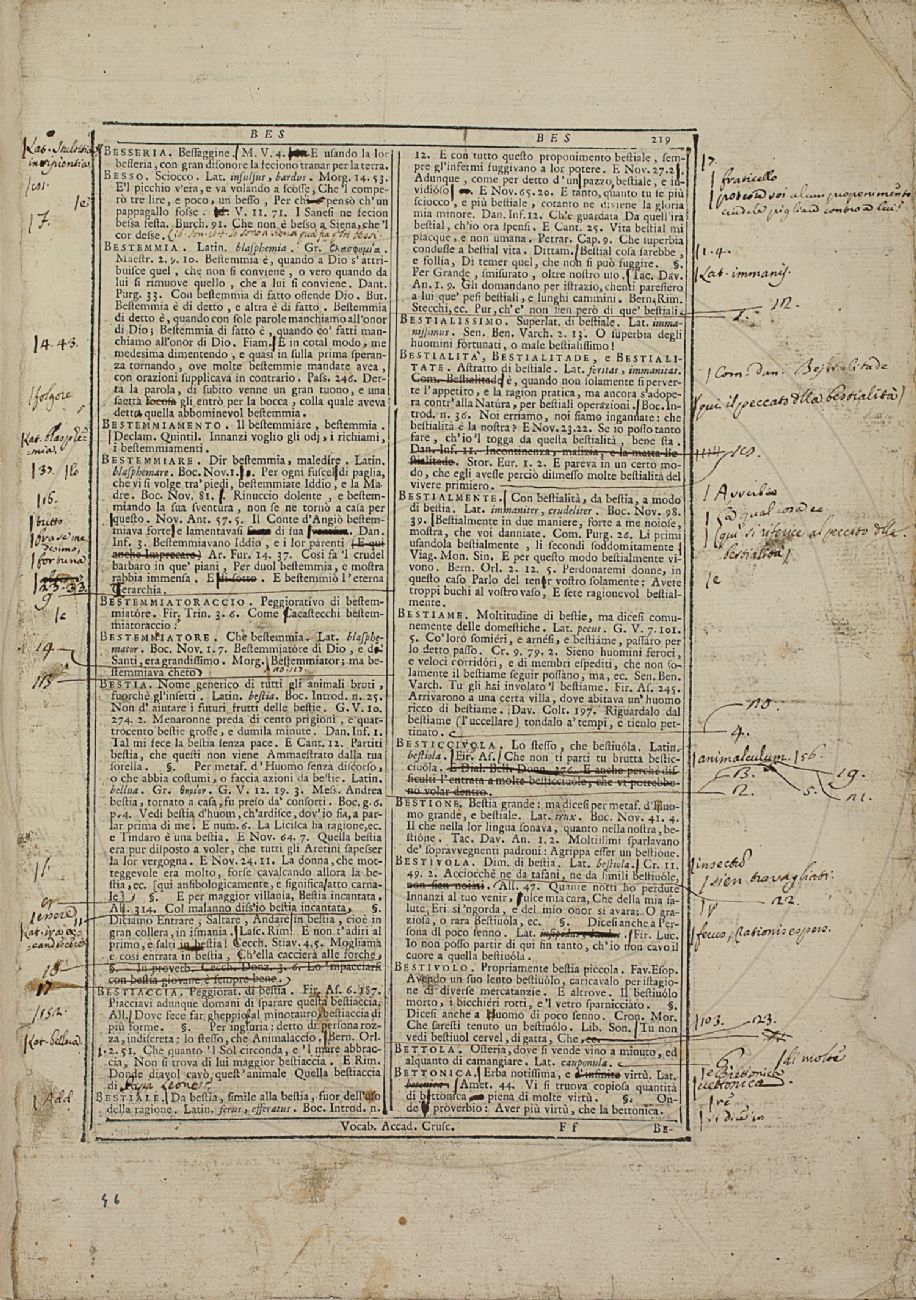 BES
BES 219
BESSERIA. Bessaggine. M. V. 4. E usando la lor
besseria, con gran disonore la feciono tranar per la terra.
BESSO. Sciocco. Lat. insulsus, bardus. Morg. 14. 53.
E'l picchio v'era, e va volando a scosse, Che 'l compe-
rò tre lire, e poco, un besso, Per chi pensò ch'un
pappagallo fosse. V. 11. 71. I Sanesi ne fecion
bessa festa. Burch. 91. Che non è besso a Siena, che'l
cor desse.
BESTEMMIA. Latin. blasphemia. Gr.
Maestr. 2. 9. 10. Bestemmia è, quando a Dio s'attri-
buisce quel, che non si conviene, o vero quando da
lui si rimuove quello, che a lui si conviene. Dant.
Purg. 33. Con bestemmia di fatto offende Dio. But.
Bestemmia è di detto, e altra è di fatto. Bestemmia
di detto è, quando con sole parole manchiamo all'onor
di Dio; Bestemmia di fatto è, quando co' fatti man-
chiamo all'onor di Dio. Fiam. E in cotal modo, me
medesima dimentendo, e quasi in sulla prima speran-
za tornando, ove molte bestemmie mandate avea,
con orazioni supplicava in contrario. Pass. 246. Det-
ta la parola, di subito venne un gran tuono, e una
saetta gli entrò per la bocca, colla quale aveva
detta quella abbominevol bestemmia.
BESTEMMIAMENTO. Il bestemmiáre, bestemmia.
Declam. Quintil. Innanzi voglio gli odj, i richiami,
i bestemmiamenti.
BESTEMMIARE. Dir bestemmia, maledire. Latin.
blasphemare. Boc. Nov. 1. Per ogni fuscel di paglia,
che vi si volge tra' piedi, bestemmiate Iddio, e la Ma-
dre. Boc. Nov. 81. Rinuccio dolente, e bestem-
miando la sua sventura, non se ne tornò a casa per
questo. Nov. Ant. 57. 5. Il Conte d'Angiò bestem-
miava forte, e lamentavasi di sua Dan.
Inf. 3. Bestemmiavano Iddio, e i lor parenti (E qui
anche Imprecare) Ar. Fur. 14. 37. Così fa 'l crudel
barbaro in que' piani, Per duol bestemmia, e mostra
rabbia immensa. E di sotto. E bestemmiò l'eterna
Ierarchia.
BESTEMMIATORACCIO. Peggiorativo di bestem-
miatóre. Fir. Trin. 3. 6. Come Cacastecchi bestem-
miatoraccio?
BESTEMMIATORE. Che bestemmia. Lat. blasphe-
mator. Boc. Nov. 1. 7. Bestemmiatóre di Dio, e de'
Santi, era grandissimo. Morg. Bestemmiator; ma be-
stemmiava cheto.
BESTIA. Nome generico di tutti gli animali bruti,
fuorchè gl'insetti. Latin. bestia. Boc. Introd. n. 25.
Non d'aiutare i futuri frutti delle bestie. G. V. 10.
274. 2. Menaronne preda di cento prigioni, e quat-
trocento bestie grosse, e dumila minute. Dan. Inf. 1.
Tal mi fece la bestia senza pace. E Cant. 12. Partiti
bestia, che questi non viene Ammaestrato dalla tua
sorella. §. Per metaf. d'Huomo senza discorso,
o che abbia costumi, o faccia azioni da bestie. Latin.
bellua. Gr. G. V. 12. 19. 3. Mess. Andrea
bestia, tornato a casa, fu preso da' conforti. Boc. g. 6.
p. 4. Vedi bestia d'huom, ch'ardisce, dov'io sia, a par-
lar prima di me. E num. 6. La Licisca ha ragione, ec.
e Tindaro è una bestia. E Nov. 64. 7. Quella bestia
era pur disposto a voler, che tutti gli Aretini sapesser
la lor vergogna. E Nov. 24. 11. La donna, che mot-
teggevole era molto, forse cavalcando allora la be-
stia, ec. [qui anfibologicamente, e significa atto carna-
le] §. E per maggior villania, Bestia incantata.
All. 314. Col malanno diss'io bestia incantata. §.
Diciamo Entrare, Saltare, Andare in bestia, cioè in
gran collera, in ismania. Lasc. Rim. E non t'adiri al
primo, e salti in bestia! Cecch. Stiav. 4. 5. Mogliama
e così entrata in bestia, Ch'ella caccierà alle forche,
§. In proverb. Cecch. Donz. 3. 6. Lo 'mpacciarsi
con bestia giovane è sempre bene.
BESTIACCIA. Peggiorat. di bestia. Fir. As. 6. 187.
Piacciavi adunque domani di sparare questa bestiaccia,
All. Dove fece far gheppio al minotauro bestiaccia di
più forme. §. Per ingiuria: detto di persona roz-
za, indiscreta: lo stesso, che Animalaccio. Bern. Orl.
1. 2. 51. Che quanto 'l Sol circonda, e 'l mare abbrac-
cia, Non si trova di lui maggior bestiaccia. E Rim.
Donde diavol cavò quest'animale Quella bestiaccia
di Leone?
BESTIALE. Da bestia, simile alla bestia, fuor dell'uso
della ragione. Latin. ferus, efferatus. Boc. Introd. n.
12. E con tutto questo proponimento bestiale, sem-
pre gl'infermi fuggivano a lor potere. E Nov. 27. 2.
Adunque, come per detto d'un pazzo, bestiale, e in-
vidióso E Nov. 65. 20. E tanto, quanto tu se più
sciocco, e più bestiale, cotanto ne diviene la gloria
mia minore. Dan. Inf. 12. Ch'è guardata Da quell'ira
bestial, ch'io ora spensi. E Cant. 25. Vita bestial mi
piacque, e non umana. Petrar. Cap. 9. Che superbia
condusse a bestial vita. Dittam. Bestial cosa sarebbe,
e follia, Di temer quel, che non si può fuggire. §.
Per Grande, smisurato, oltre nostro uso. Tac. Dav.
An. 1. 9. Gli domandano per istrazio, chenti paressero
a lui que' pesi bestiali, e lunghi cammini. Bern. Rim.
Stecchi, ec. Pur, ch'e' non sien però di que' bestiali.
BESTIALISSIMO. Superlat. di bestiale. Lat. imma-
nissimus. Sen. Ben. Varch. 2. 13. O superbia degli
huomini fortunati, o male bestialissimo!
BESTIALITÀ, BESTIALITADE, e BESTIALI-
TATE. Astratto di bestiale. Lat. feritas, immanitas.
Com. Bestialitade è, quando non solamente si perver-
te l'appetito, e la ragion pratica, ma ancora s'adope-
ra contr'alla Natura, per bestiali operazioni. Boc. In-
trod. n. 36. Noi erriamo, noi siamo ingannate: che
bestialità è la nostra? E Nov. 23. 22. Se io posso tanto
fare, ch'io 'l togga da questa bestialità, bene sta.
Dan. Inf. 11. Incontinenza, malizia, e la matta Be-
stialitade. Stor. Eur. 1. 2. E pareva in un certo mo-
do, che egli avesse perciò dismesso molte bestialità del
vivere primiero.
BESTIALMENTE. Con bestialità, da bestia, a modo
di bestia. Lat. immaniter, crudeliter. Boc. Nov. 98.
39. Bestialmente in due maniere, forte a me noiose,
mostra, che voi danniate. Com. Purg. 26. Li primi
usandola bestialmente, li secondi soddomitamente.
Viag. Mon. Sin. E per questo modo bestialmente vi-
vono. Bern. Orl. 2. 12. 5. Perdonatemi donne, in
questo caso Parlo del tenor vostro solamente: Avete
troppi buchi al vostro vaso, E sete ragionevol bestial-
mente.
BESTIAME. Moltitudine di bestie, ma dicesi comu-
nemente delle domestiche. Lat. pecus. G. V. 7. 101.
5. Co' loró somiéri, e arnési, e bestiáme, passáro per
lo detto passo. Cr. 9. 79. 2. Sieno huomini feroci,
e veloci corridóri, e di membri espediti, che non so-
lamente il bestiame seguir possano, ma, ec. Sen. Ben.
Varch. Tu gli hai involato 'l bestiame. Fir. As. 245.
Arrivarono a una certa villa, dove abitava un'huomo
ricco di bestiame. Dav. Colt. 197. Riguardalo dal
bestiame (l'uccellare) tondalo a' tempi, e tienlo pet-
tinato.
BESTICCIVOLA. Lo stesso, che bestiuóla. Latin.
bestiola. Fir. As. Che non ti parti tu brutta bestic-
ciuóla. E Dial. Bell. Donn. 376. E anche perchè dif-
ficulti l'entrata a molte besticciuóle, che vi potrebbo-
no volar dentro.
BESTIONE. Bestia grande: ma dicesi per metaf. d'Huo-
mo grande, e bestiale. Lat. trux. Boc. Nov. 41. 4.
Il che nella lor lingua sonava, quanto nella nostra, be-
stióne. Tac. Dav. An. 1. 2. Moltissimi sparlavano
de' sopravvegnenti padroni: Agrippa esser un bestióne.
BESTIVOLA. Dim. di bestia. Lat. bestiola. Cr. 11.
49. 2. Acciocchè ne da tafani, ne da simili bestiuóle,
non sian noiati. All. 47. Quante notti ho perdute
Innanzi al tuo venire, pulce mia cara, Che della mia sa-
lute, Eri sì 'ngorda, e del mio onor sì avara; O gra-
ziosa, o rara bestiuóla, ec. §. Dicesi anche a Per-
sona di poco senno. Lat. Fir. Luc.
Io non posso partir di qui sin tanto, ch'io non cavo il
cuore a quella bestiuóla.
BESTIVOLO. Propriamente bestia piccola. Fav. Esop.
Avendo un suo lento bestiuólo, caricavalo per istagio-
ne di diverse mercatanzie. E altrove. Il bestiuólo
morto, i bicchiéri rotti, e 'l vetro sparnicciato. §.
Dicesi anche a Huomo di poco senno. Cron. Mor.
Che saresti tenuto un bestiuólo. Lib. Son. Tu non
vedi bestiuol cervel, di gatta, Che, ec.
BETTOLA. Osteria, dove si vende vino a minuto, ed
alquanto di camangiare. Lat. caupomula.
BETTONICA. Erba notissima, e d'infinite virtù. Lat.
Amet. 44. Vi si truova copiosa quantità
di bettonica piena di molte virtù. §. On-
de 'l proverbio: Aver più virtù, che la bettonica.
Vocab. Accad. Crusc. F f BE-
fraticello
1. 4.
Lat. immanis.
Com. Dan. Bestialitade
(qui il peccato della bestialità)
Avverbio
animalculum
19.
13.
12.
5.
21.
insecto
sien travagliati
22.
103.
123.
4. 43.
folgore
14
115
18
17
Add.
56